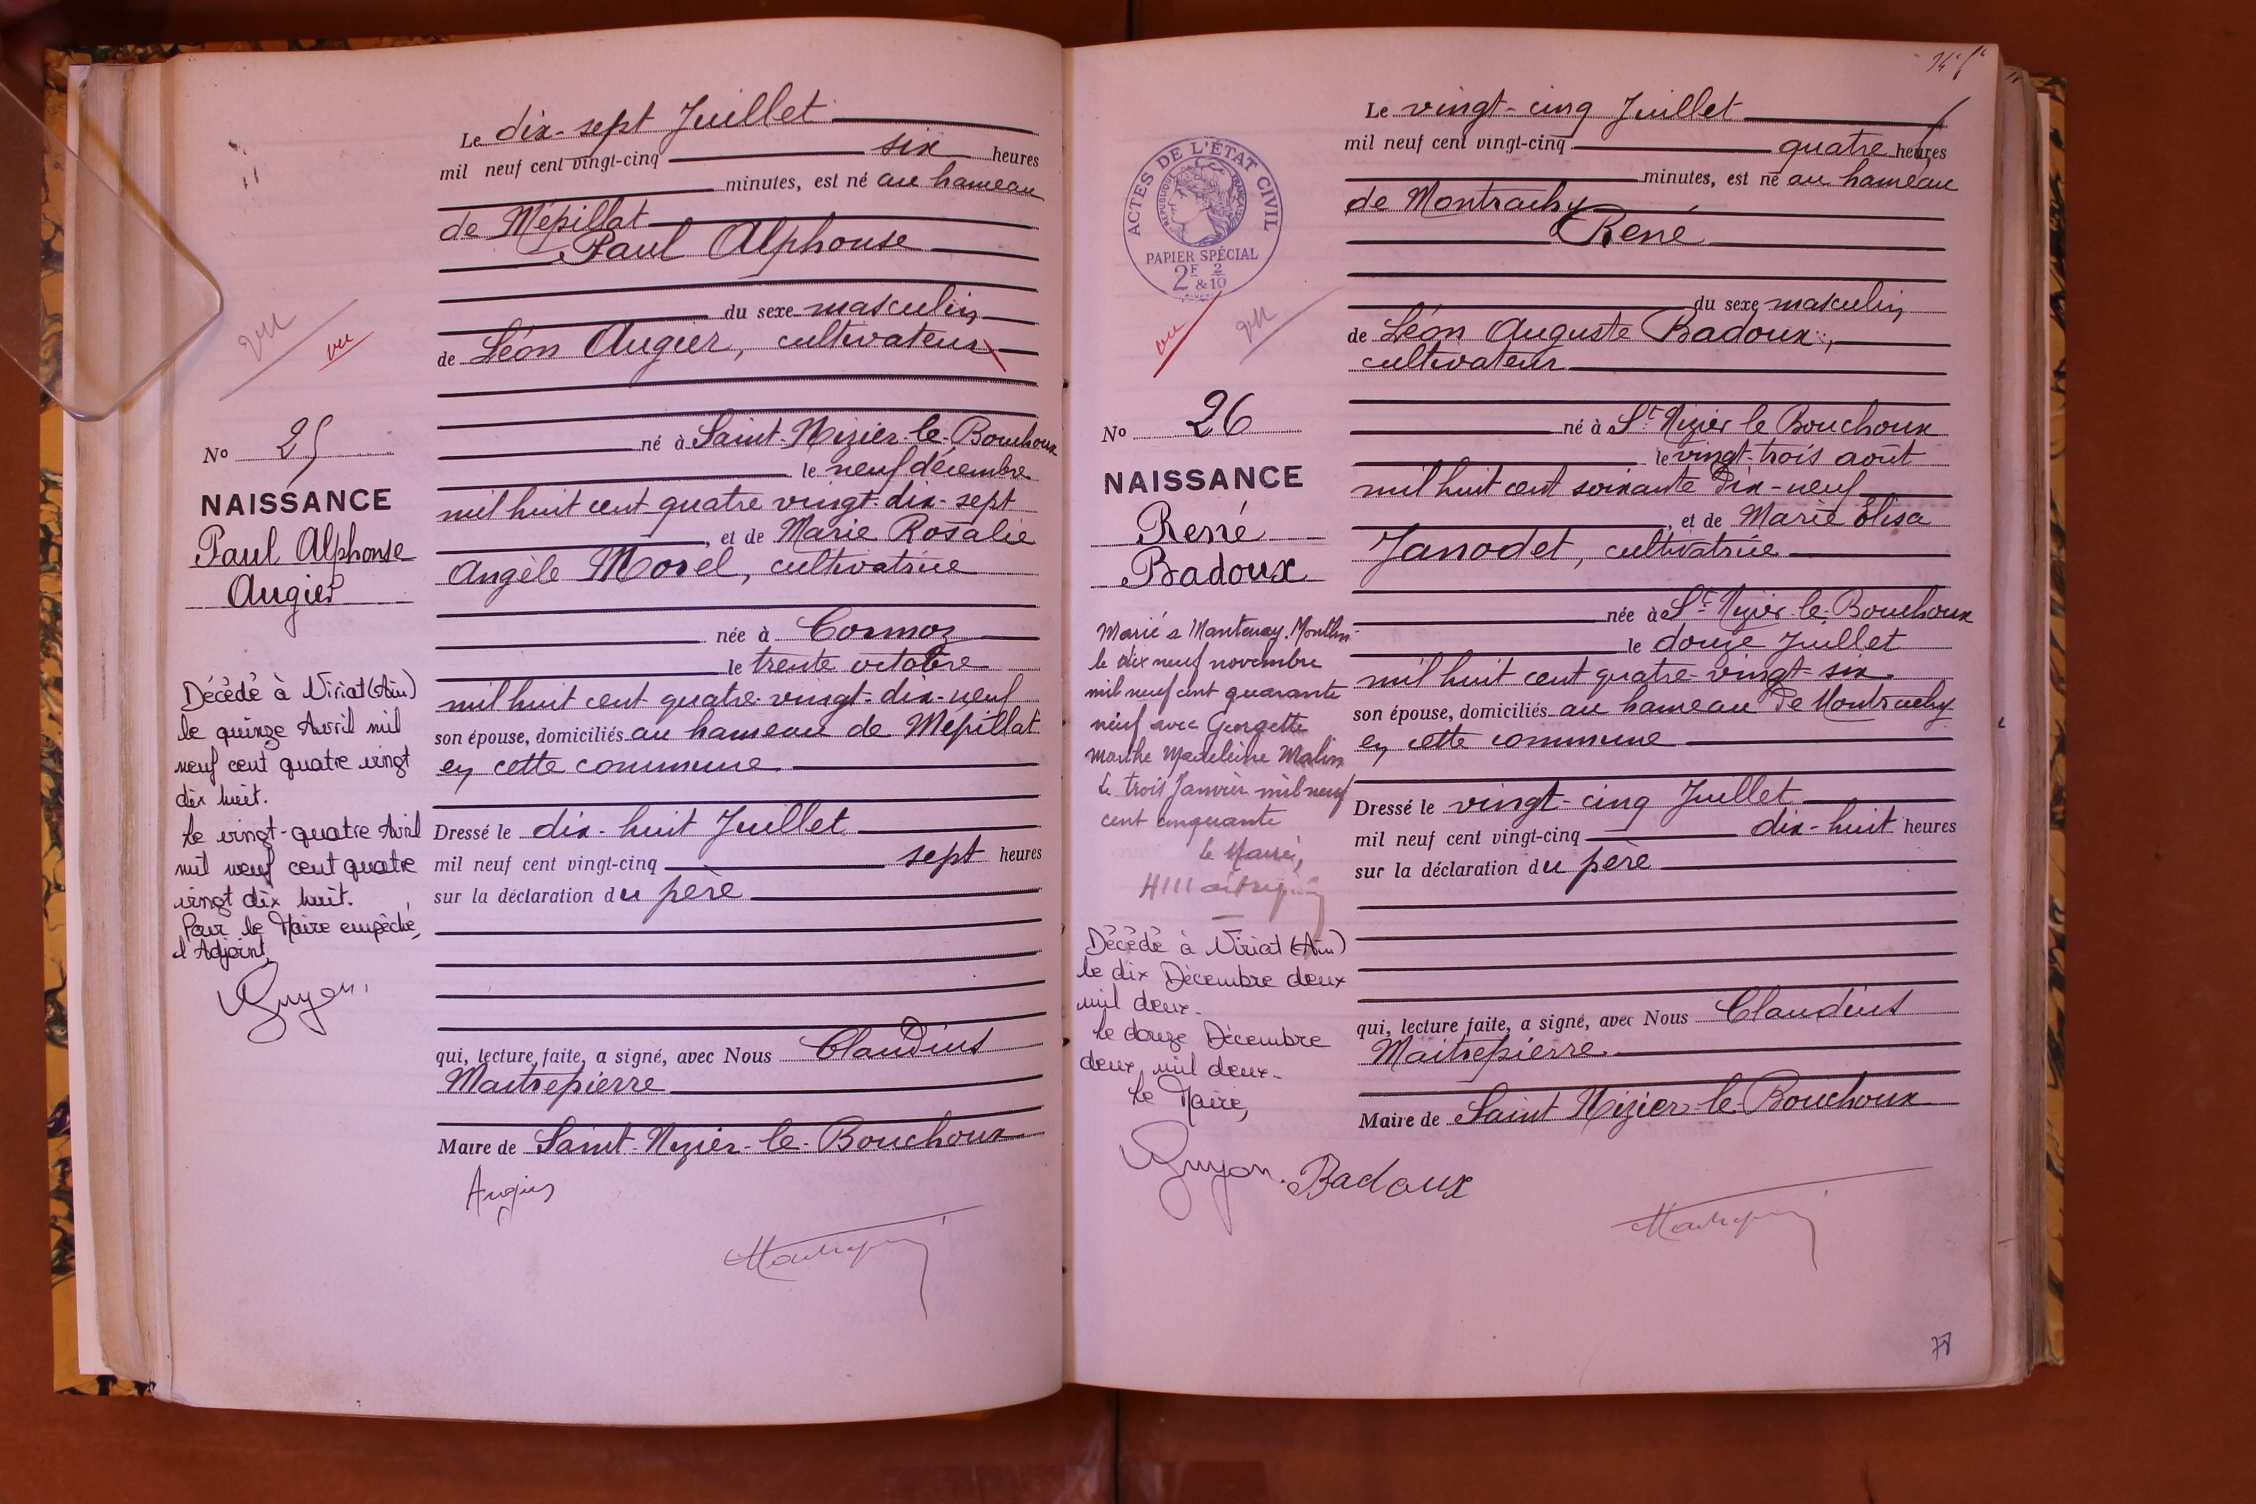 Le dix-sept Juillet
mil neuf cent vingt-cinq six heures
minutes, est né au hameau
de Mépillat
Paul Alphonse
du sexe masculin
de Léon Augier, cultivateur
né à Saint-Nizier-le-Bouchoux
le neuf décembre
mil huit cent quatre vingt-dix-sept
, et de Marie Rosalie
Angèle Morel, cultivatrice
née à Cormoz
le trente octobre
mil huit cent quatre-vingt-dix-neuf
son épouse, domiciliés au hameau de Mépillat
en cette commune
Dressé le dix-huit Juillet
mil neuf cent vingt-cinq sept heures
sur la déclaration du père
qui, lecture faite, a signé, avec Nous Claudius
Maitrepierre
Maire de Saint-Nizier-le-Bouchoux
Augier
vu
vu
No 25
NAISSANCE
Paul Alphonse
Augier
Décédé à Viriat (Ain)
le quinze Avril mil
neuf cent quatre vingt
dix huit.
Le vingt-quatre Avril
mil neuf cent quatre
vingt dix huit.
Pour le Maire empêché,
l'Adjoint,
Guyon.
Le vingt-cinq Juillet
mil neuf cent vingt-cinq quatre heures
minutes, est né au hameau
de Montrachy
René
du sexe masculin
de Léon Auguste Badoux,
cultivateur
né à St Nizier le Bouchoux
le vingt-trois août
mil huit cent soixante dix-neuf
, et de Marie Élisa
Janodet, cultivatrice
née à St-Nizier-le-Bouchoux
le douze Juillet
mil huit cent quatre-vingt-six
son épouse, domiciliés au hameau de Montrachy
en cette commune
Dressé le vingt-cinq Juillet
mil neuf cent vingt-cinq dix-huit heures
sur la déclaration du père
qui, lecture faite, a signé, avec Nous Claudius
Maitrepierre
Maire de Saint Nizier-le-Bouchoux
Badoux
ACTES DE L'ÉTAT CIVIL
RÉPUBLIQUE FRANÇAISE
PAPIER SPÉCIAL
2F & 2/10
vu
vu
No 26
NAISSANCE
René
Badoux
Marié à Mantenay-Montlin
le dix neuf novembre
mil neuf cent quarante
neuf avec Georgette
Marthe Madeleine Malin
Le trois Janvier mil neuf
cent cinquante
Le Maire,
Décédé à Viriat (Ain)
le dix Décembre deux
mil deux.
Le douze Décembre
deux mil deux.
Le Maire,
Guyon.
78